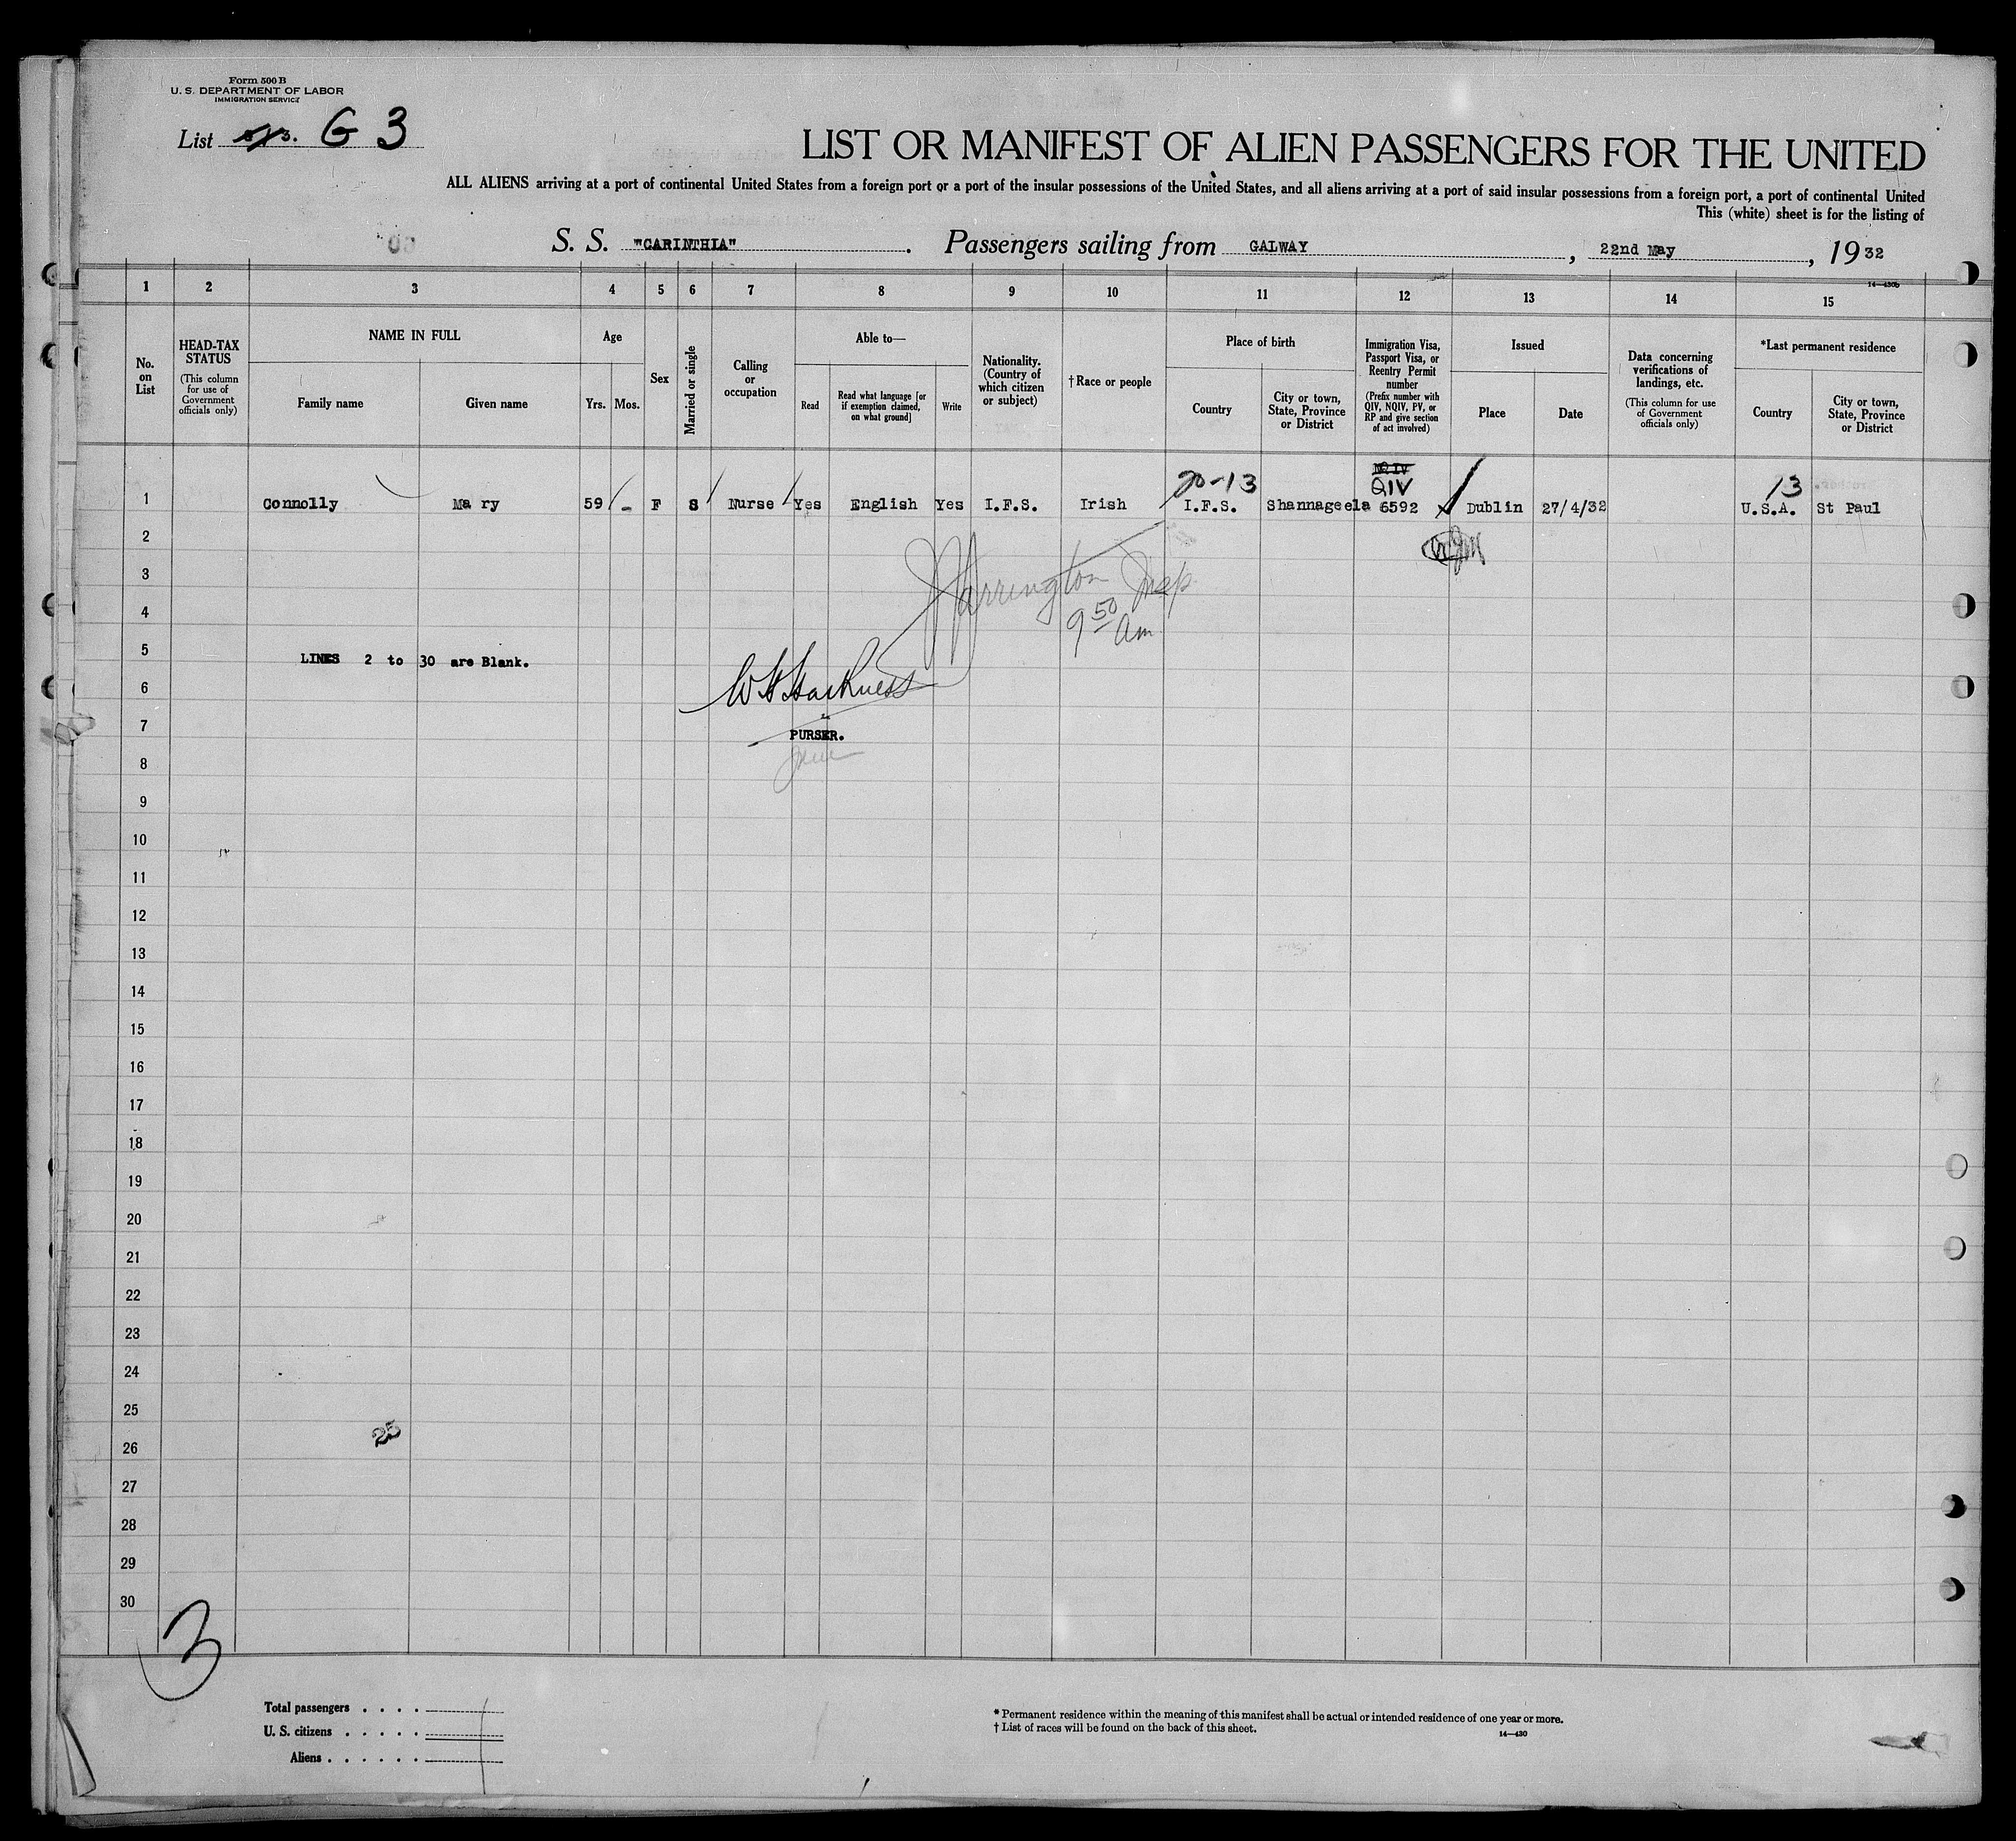 Form 500 B
U. S. DEPARTMENT OF LABOR
IMMIGRATION SERVICE
List G 3
LIST OR MANIFEST OF ALIEN PASSENGERS FOR THE UNITED
ALL ALIENS arriving at a port of continental United States from a foreign port or a port of the insular possessions of the United States, and all aliens arriving at a port of said insular possessions from a foreign port, a port of continental United
This (white) sheet is for the listing of
S. S. "CARINTHIA". Passengers sailing from GALWAY, 22nd May, 1932
14—430b
1 2 3 4 5 6 7 8 9 10 11 12 13 14 15
No. on List
HEAD-TAX STATUS
(This column for use of Government officials only)
NAME IN FULL
Family name Given name
Age
Yrs. Mos.
Sex
Married or single
Calling or occupation
Able to—
Read
Read what language [or if exemption claimed, on what ground]
Write
Nationality. (Country of which citizen or subject)
†Race or people
Place of birth
Country
City or town, State, Province or District
Immigration Visa, Passport Visa, or Reentry Permit number
(Prefix number with QIV, NQIV, PV, or RP and give section of act involved)
Issued
Place Date
Data concerning verifications of landings, etc.
(This column for use of Government officials only)
*Last permanent residence
Country
City or town, State, Province or District
NQIV
20-13 QIV 13
1 Connolly Mary 59 - F S Nurse Yes English Yes I.F.S. Irish I.F.S. Shannageela 6592 Dublin 27/4/32 U.S.A. St Paul
2
3
Harrington Insp
4
9 50 am
5
LINES 2 to 30 are Blank.
6
W H Harkness
7
PURSER.
8
9
10
11
12
13
14
15
16
17
18
19
20
21
22
23
24
25
25
26
27
28
29
30
3
Total passengers . . . .
U. S. citizens . . . . .
Aliens . . . . . .
* Permanent residence within the meaning of this manifest shall be actual or intended residence of one year or more.
† List of races will be found on the back of this sheet.
14—430